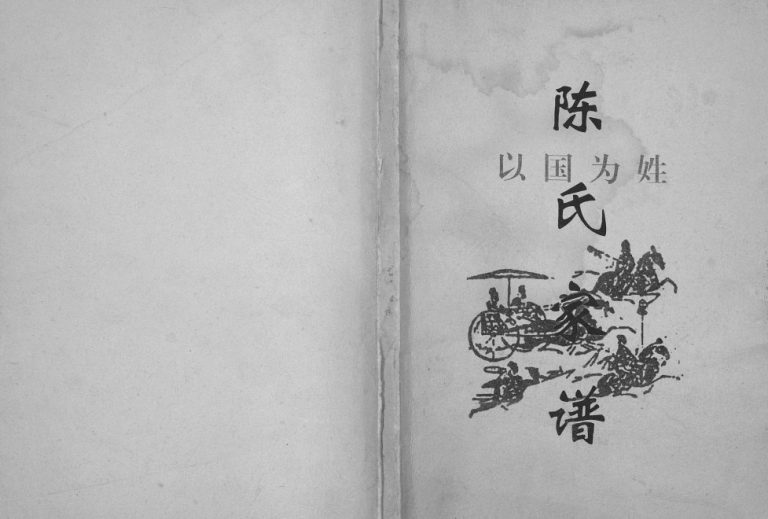 陈氏家谱
以国为姓